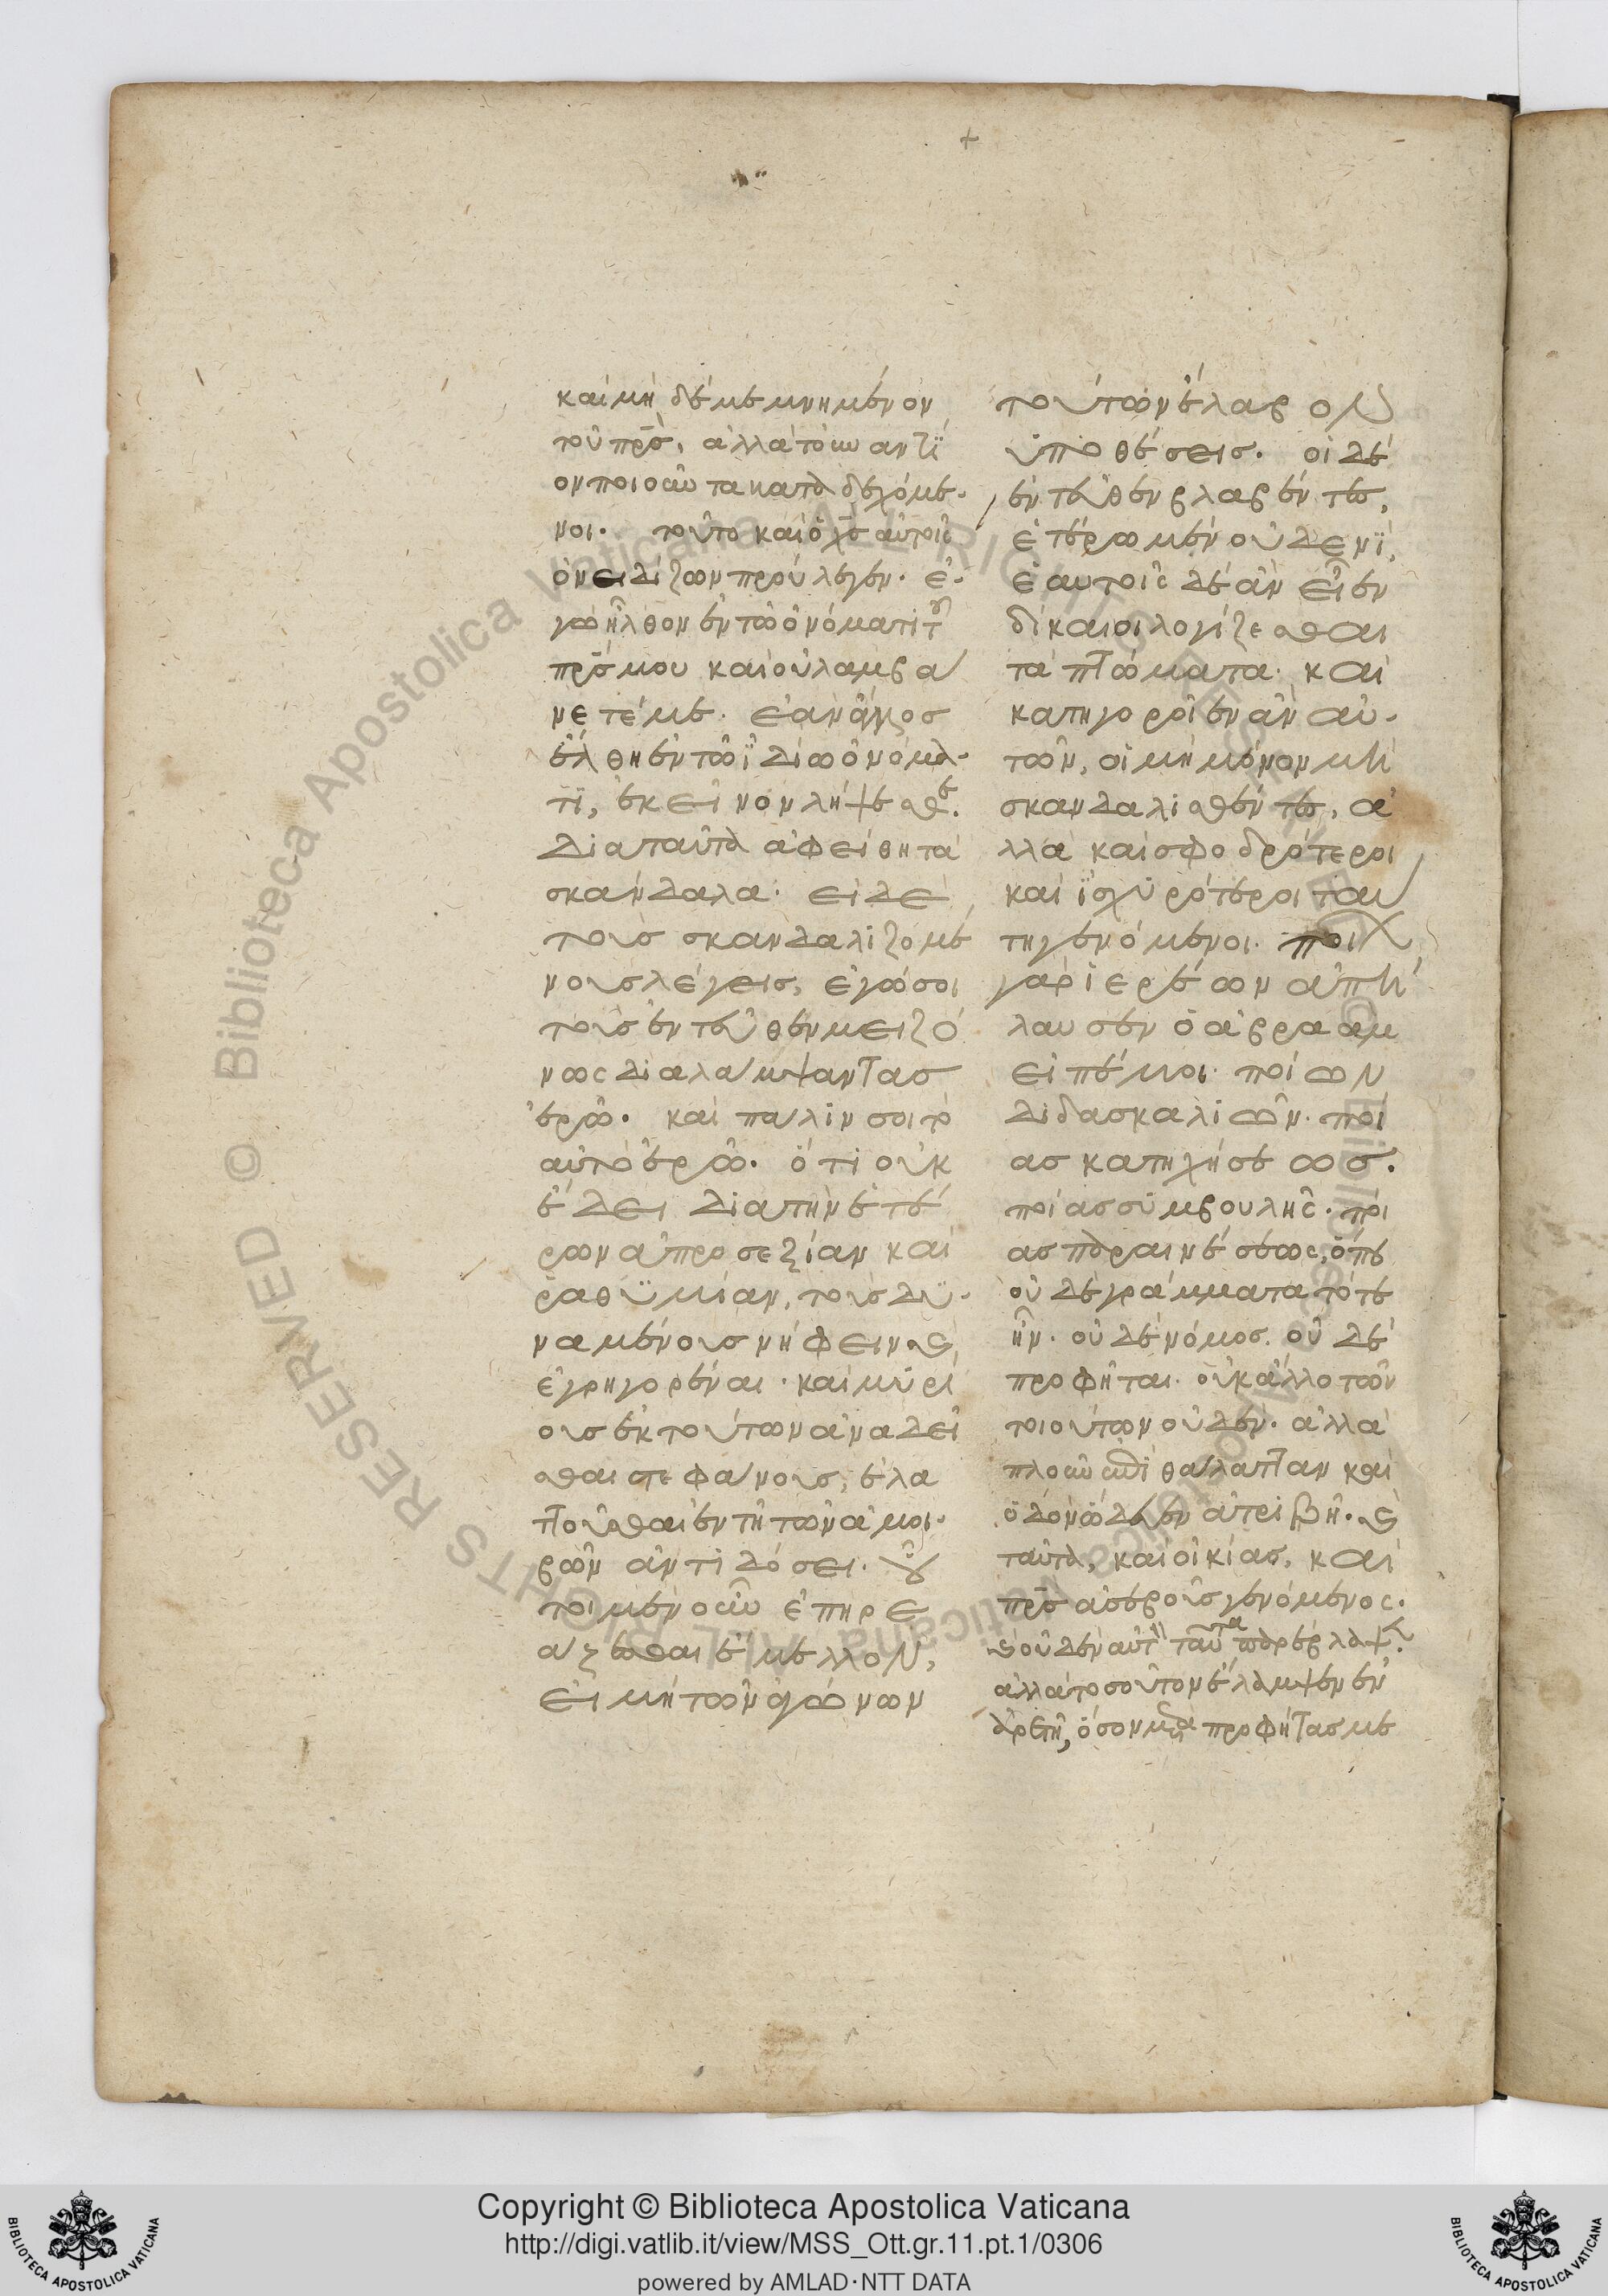 καὶ μηδὲ μεμνημένον
τοῦ πρσ, ἀλλὰ τὸ ἐναντί
ον ποιοῦντα κατα δεχόμε
νοι. τοῦτο καὶ ὁ χσ αὐτοῖς
ὀνειδίζων προύλεγεν. ἐ
γὼ ἦλθον ἐν τῶ ὀνόματι τοῦ
πρσ μου καὶ οὐ λαμβά
νετέ με. ἐὰν ἄλλος
ἔλθη ἐν τῶ ἰδίω ὀνόμα
τι, ἐκεῖνον λήψεσθε.
Διαταῦτα ἀφείθη τὰ
σκάνδαλα. εἰ δὲ
τοὺσ σκανδαλιζομέ
νουσ λέγεισ, ἐγώ σοι
τοὺσ ἐντεῦθεν μειζό
νως διαλάμψαντασ
ἐρῶ. καὶ πάλιν σοι τὸ
αὐτὸ ἐρῶ. ὅτι οὐκ
ἔδει διὰ τὴν ἑτέ
ρων ἀπροσεξίαν καὶ
ῥαθυμίαν, τοὺσ δυ
ναμένουσ νήφειν καὶ
ἐγρηγορέναι. καὶ μυρί
ουσ ἐκ τούτων ἀναδεῖ
σθαι στεφάνουσ, ἐλα
ττοῦσθαι ἐν τῆ τῶν ἀμοι
βῶν ἀντιδόσει. οὗ
τοι μὲν οὖν ἐπηρε
άζεσθαι ἔμελλον,
εἰ μὴ τῶν ἀγώνων
τούτων ἔλαβον
ὑποθέσεισ. οἱ δὲ
ἐντεῦθεν βλαβέντες,
ἑτέρω μὲν οὐδενὶ,
ἑαυτοῖς δὲ ἂν εἶεν
δίκαιοι λογίζεσθαι
τὰ πτώματα. καὶ
κατηγοροῖεν ἂν αὐ
τῶν, οἱ μὴ μόνον μὴ
σκανδαλισθέντες, ἀ
λλὰ καὶ σφοδρότεροι
καὶ ἰσχυρότεροι ταύ
τη γενόμενοι. ποί
γὰρ ἱερέων ἀπή
λαυσεν ὁ ἀβραὰμ
εἰπέ μοι. ποίων
διδασκαλιῶν. ποί
ασ κατηχήσεωσ.
ποίασ συμβουλῆς. ποί
ασ παραινέσεως, ὅπε
οὐδὲ γράμματα τότε
ἦν. οὐδὲ νόμοσ. οὐδὲ
προφῆται. οὐκ ἄλλο τῶν
τοιούτων οὐδέν. ἀλλὰ
πλοῦν ἔπλει θάλατταν καὶ
ὁδὸν ὥδευεν ἀτριβῆ. καὶ
ταῦτα, καὶ οἰκίασ, καὶ
πρσ ἀσεβοῦσ γενόμενος.
καὶ οὐδὲν αὐτὸν ταῦτα παρέβλαψεν.
ἀλλὰ τοσοῦτον ἔλαμψεν ἐν
ἀρετῆ, ὅσον μετὰ προφήτασ με